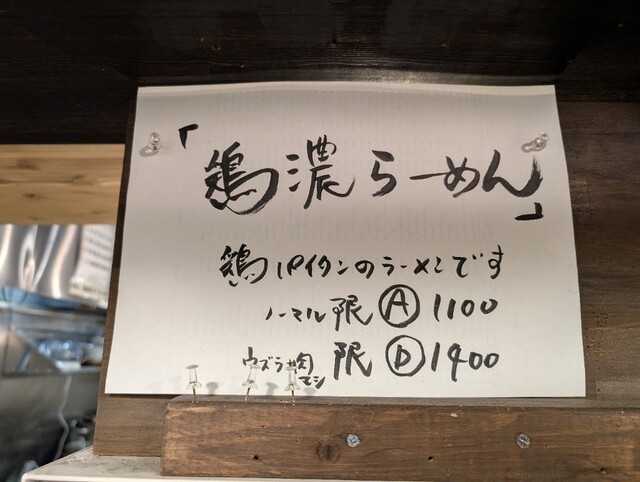 「鶏濃らーめん」
鶏パイタンのラーメンです
ノーマル 限 Ⓐ 1100
ウズラ+肉マシ 限 Ⓓ 1400